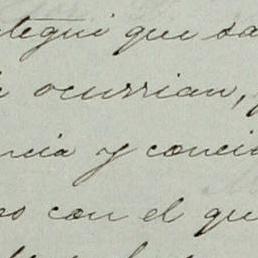 tegui que sa
ocurrian,
ncia y conci
os con el qu